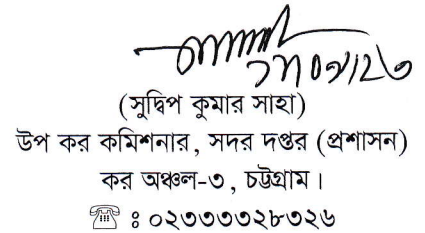 (সুদ্বিপ কুমার সাহা)
উপ কর কমিশনার, সদর দপ্তর (প্রশাসন)
কর অঞ্চল-৩, চট্টগ্রাম।
☎ : ০২৩৩৩৩২৮৩২৬